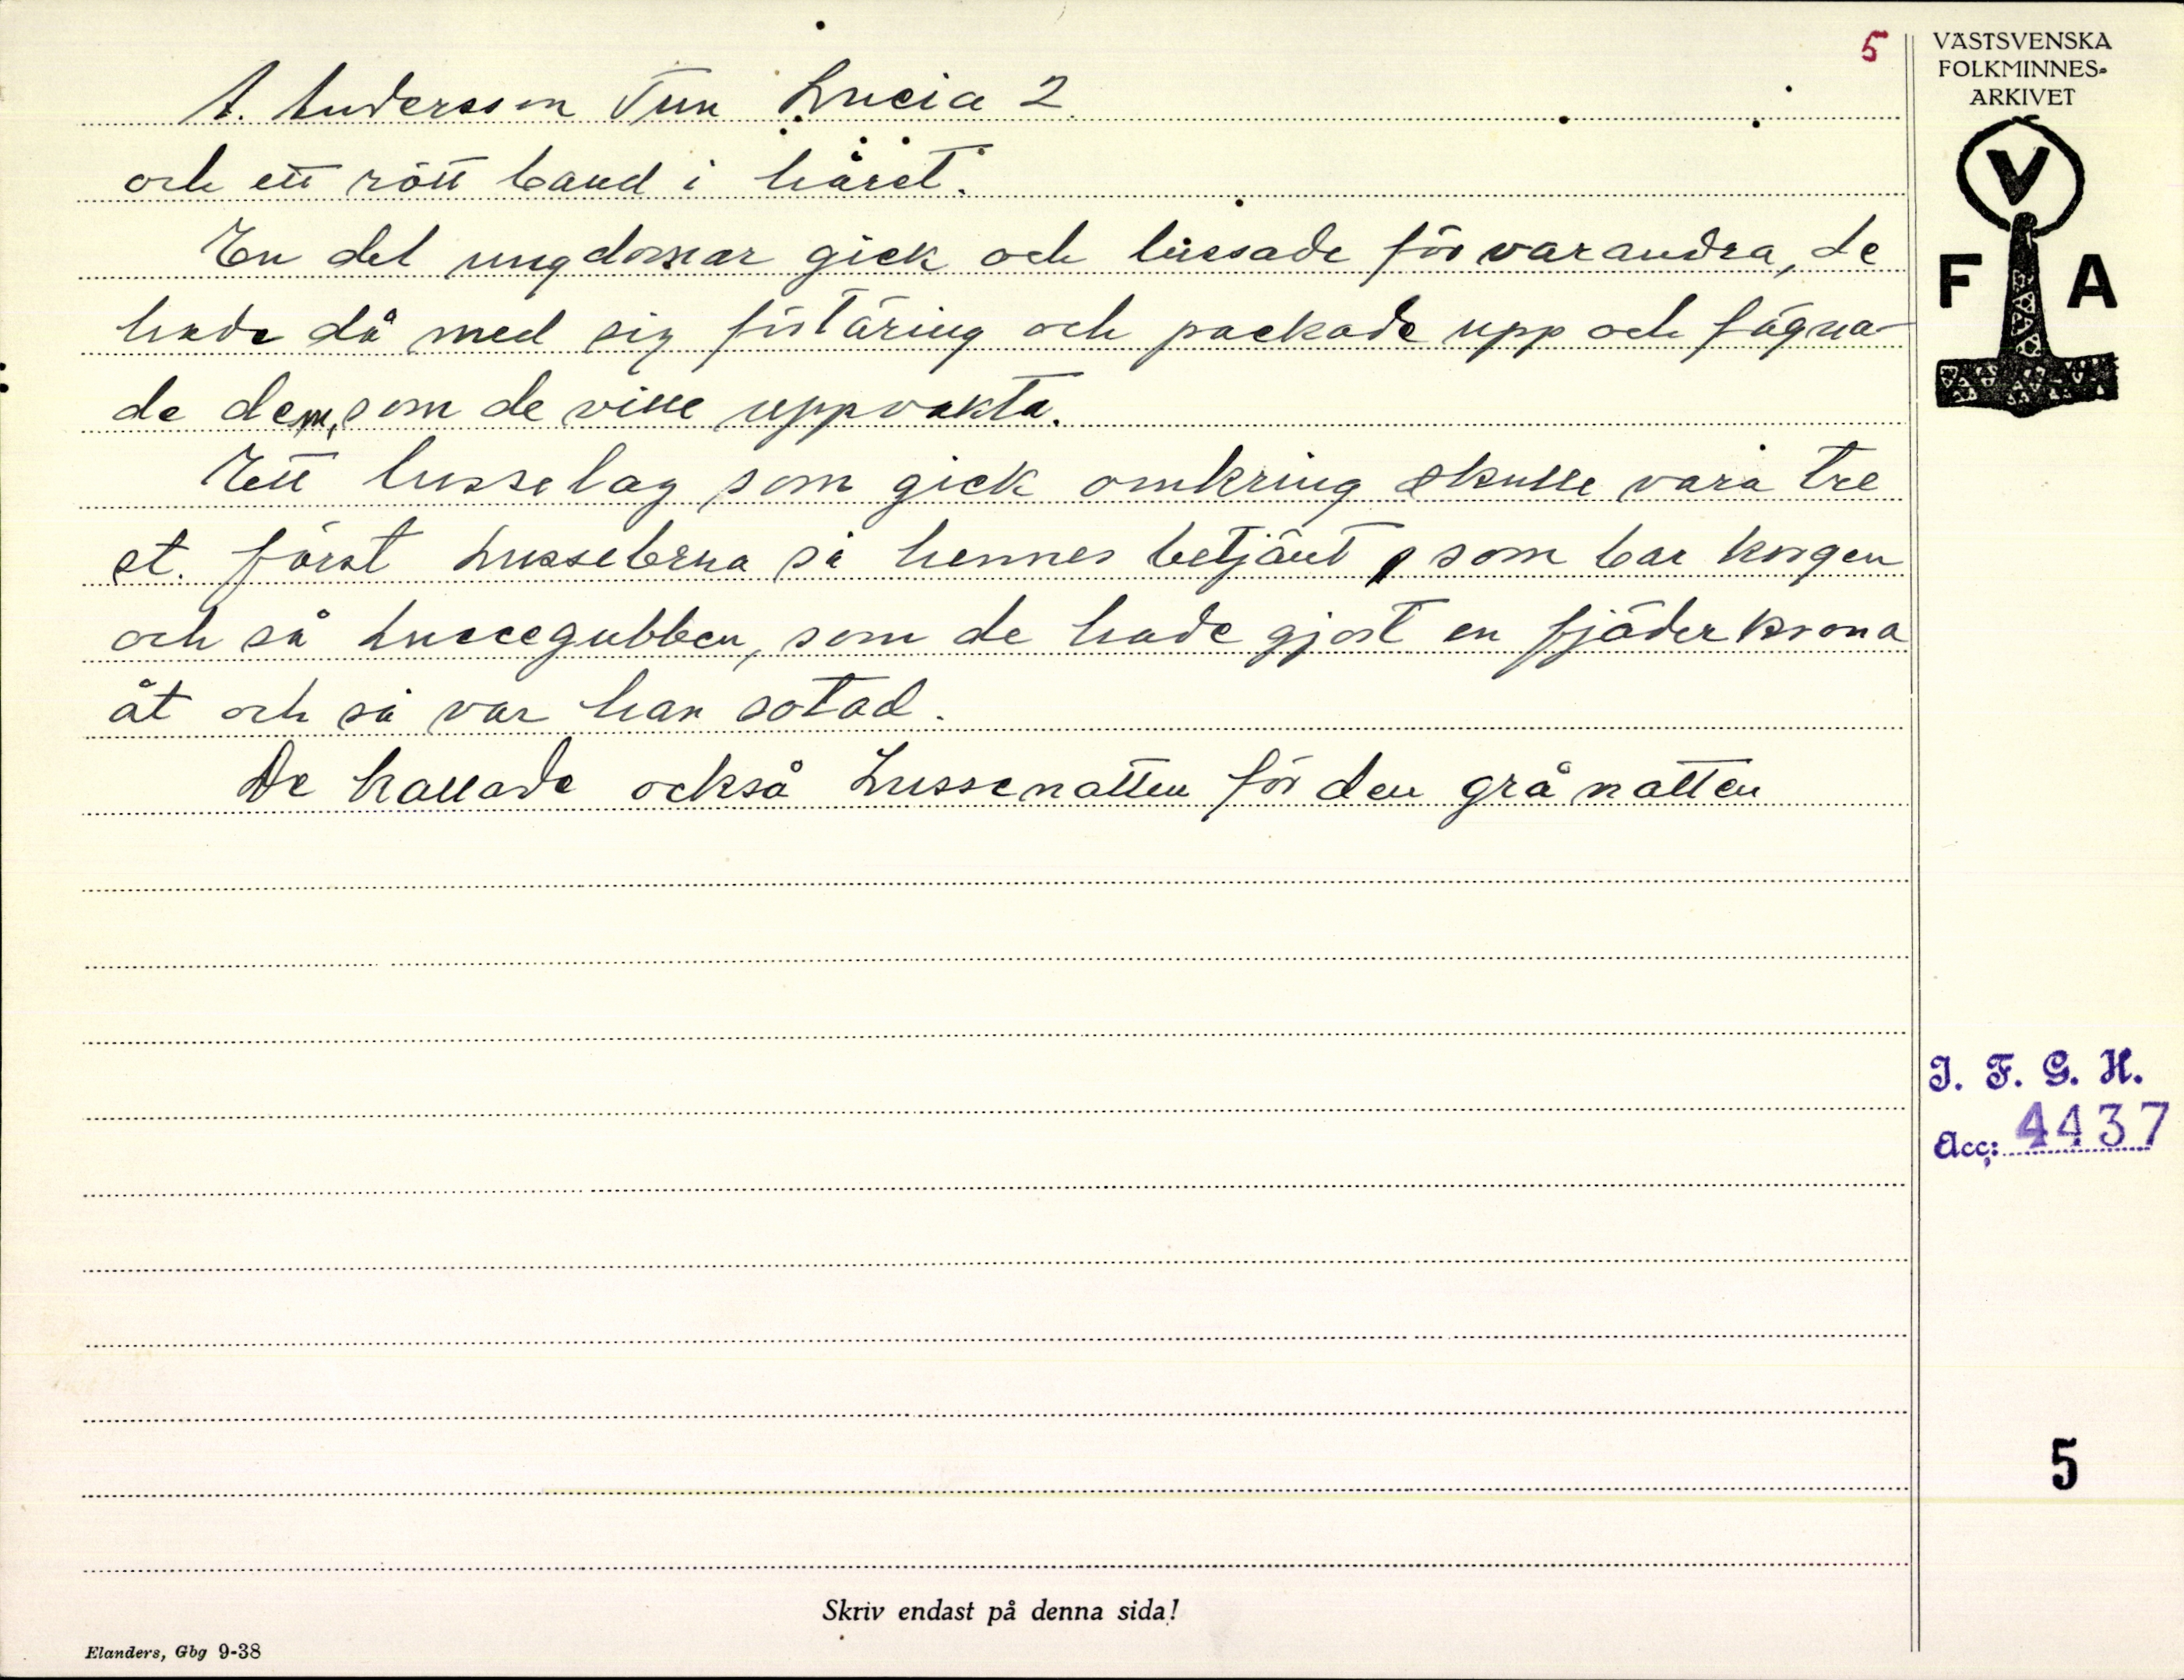 5
A. Andersson Tun Lucia 2.
och ett rött band i håret.
En del ungdomar gick och lussade för varandra, de
hade då med sig förtäring och packade upp och fägna-
de dem, som de ville uppvakta.
Ett lusselag som gick omkring skulle vara tre
st. först Lussebrua så hennes betjänt, som bar korgen
och så Lussegubben, som de hade gjort en fjäderkrona
åt och så var han sotad.
De kallade också Lussenatten för den grå natten
VÄSTSVENSKA
FOLKMINNES-
ARKIVET
V
F A
I. F. G. H.
Acc: 4437
5
Skriv endast på denna sida!
Elanders, Gbg 9-38